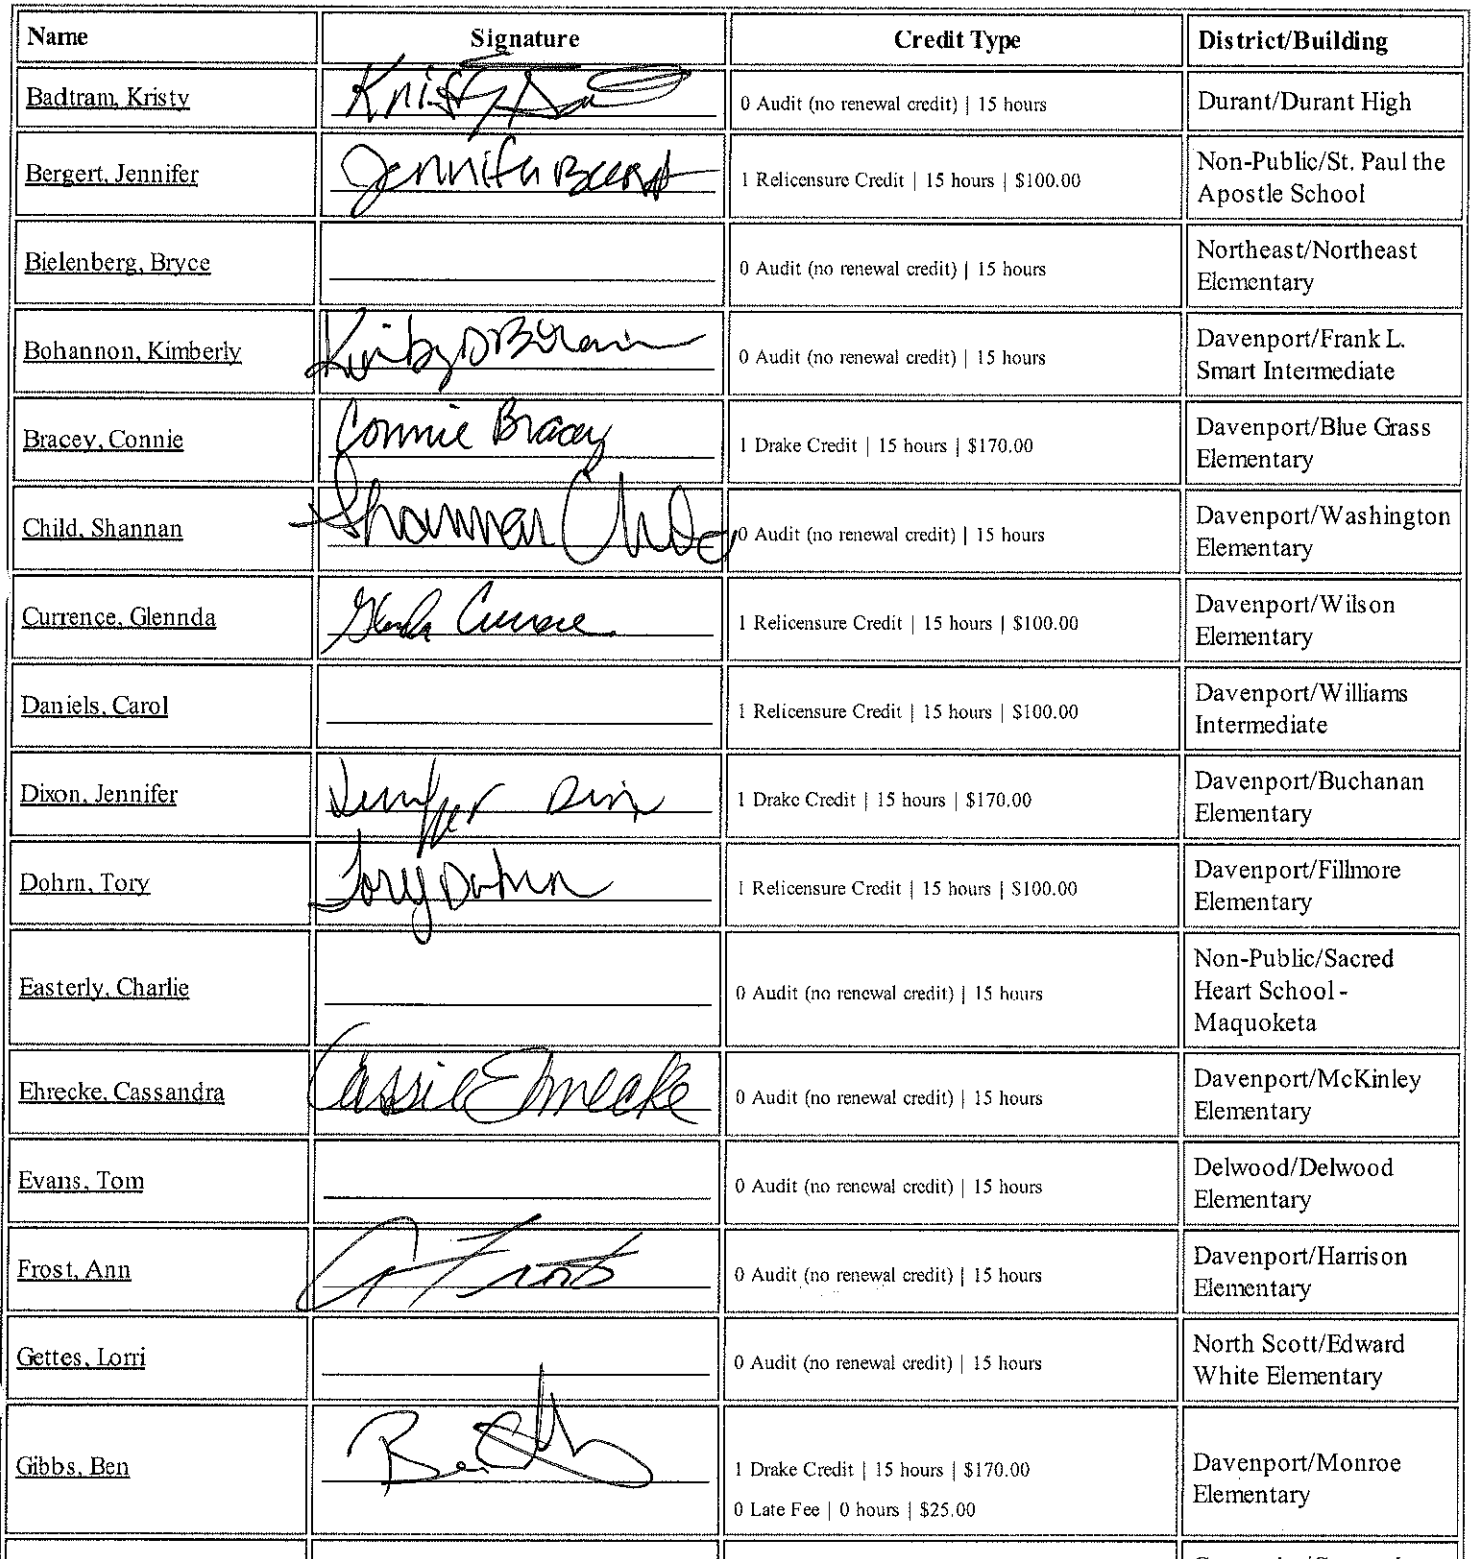 Name Signature Credit Type District/Building
Badtram, Kristy Kristy 0 Audit (no renewal credit) | 15 hours Durant/Durant High
Bergert, Jennifer Jennifer 1 Relicensure Credit | 15 hours | $100.00 Non-Public/St. Paul the
Apostle School
Bielenberg, Bryce 0 Audit (no renewal credit) | 15 hours Northeast/Northeast
Elementary
Bohannon, Kimberly 0 Audit (no renewal credit) | 15 hours Davenport/Frank L.
Smart Intermediate
Bracey, Connie Connie Bracey 1 Drake Credit | 15 hours | $170.00 Davenport/Blue Grass
Elementary
Child, Shannan Shannan Child 0 Audit (no renewal credit) | 15 hours Davenport/Washington
Elementary
Currence, Glennda 1 Relicensure Credit | 15 hours | $100.00 Davenport/Wilson
Elementary
Daniels, Carol 1 Relicensure Credit | 15 hours | $100.00 Davenport/Williams
Intermediate
Dixon, Jennifer Jennifer 1 Drake Credit | 15 hours | $170.00 Davenport/Buchanan
Elementary
Dohrn, Tory Tory Dohrn 1 Relicensure Credit | 15 hours | $100.00 Davenport/Fillmore
Elementary
Easterly, Charlie 0 Audit (no renewal credit) | 15 hours Non-Public/Sacred
Heart School -
Maquoketa
Ehrecke, Cassandra Cassie Ehrecke 0 Audit (no renewal credit) | 15 hours Davenport/McKinley
Elementary
Evans, Tom 0 Audit (no renewal credit) | 15 hours Delwood/Delwood
Elementary
Frost, Ann A Frost 0 Audit (no renewal credit) | 15 hours Davenport/Harrison
Elementary
Gettes, Lorri 0 Audit (no renewal credit) | 15 hours North Scott/Edward
White Elementary
Gibbs, Ben Ben 1 Drake Credit | 15 hours | $170.00 Davenport/Monroe
Elementary
0 Late Fee | 0 hours | $25.00